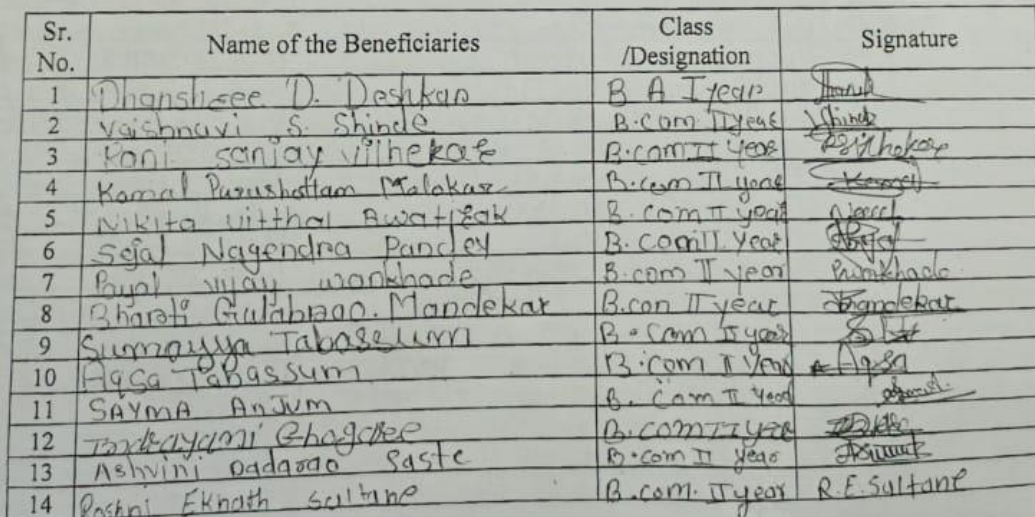 Sr. No. Name of the Beneficiaries Class /Designation Signature
1 Dhanshree D. Deshkar B A I year
2 Vaishnavi S. Shinde B.com II year Shinde
3 Rani sanjay vilhekar B.com II year
4 Komal Purushottam Malokar B.com II year Komal
5 Nikita vitthal Awatirak B.com II year
6 Sejal Nagendra Pandey B.com II Year
7 Payal vijay wankhade B.com II year Pwankhade
8 Bharati Gulabrao. Mandekar B.con II year
9 Sumayya Tabassum B.com II year
10 Aqsa Tabassum B.com II Year Aqsa
11 SAYMA AnJUM B. Com II Year
12 Ghogare B.com II year
13 Ashvini Dadarao Saste B.com II Year
14 Roshni Eknath Sultane B.com. II year R.E.Sultane